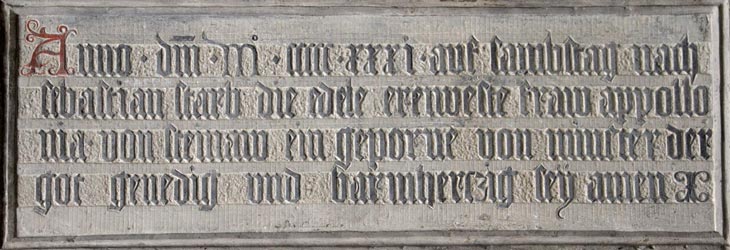 Anno · dm̄ · m° · cccc · xxxi · auf sambstag nach
sebastian starb die edele erenveste fraw appollo
nia · von steinaw ein geporne von munster der
got genedig vnd barmhertzig sey amen